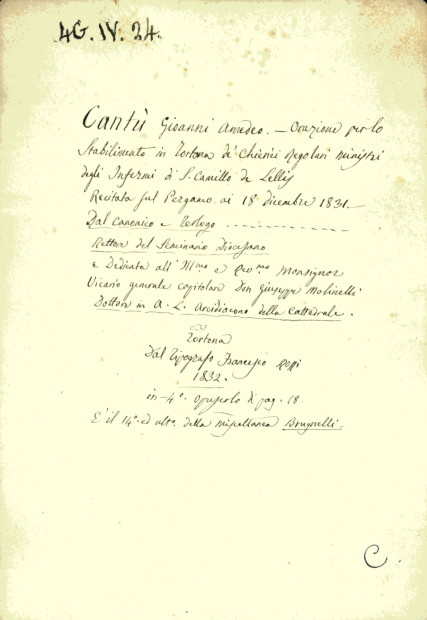 4G. IV. 24.
Cantù Gioanni Amedeo. — Orazione per lo
Stabilimento in Tortona de' Chierici Regolari Ministri
degli Infermi di S. Camillo de Lellis
Recitata sul Pergamo ai 18 dicembre 1831.
Dal Canonico e Teologo
Rettor del Seminario Diocesano
e Dedicata all' Ill.mo e Rev.mo Monsignor
Vicario generale capitolare Don Giuseppe Molinelli
Dottore in A. L. Arcidiacono della Cattedrale.
Tortona
Dal Tipografo Francesco Rossi
1832.
in-4°. opuscolo di pag. 18.
E' il 14°. ed ult°. della miscellanea Brugnelli.
C.